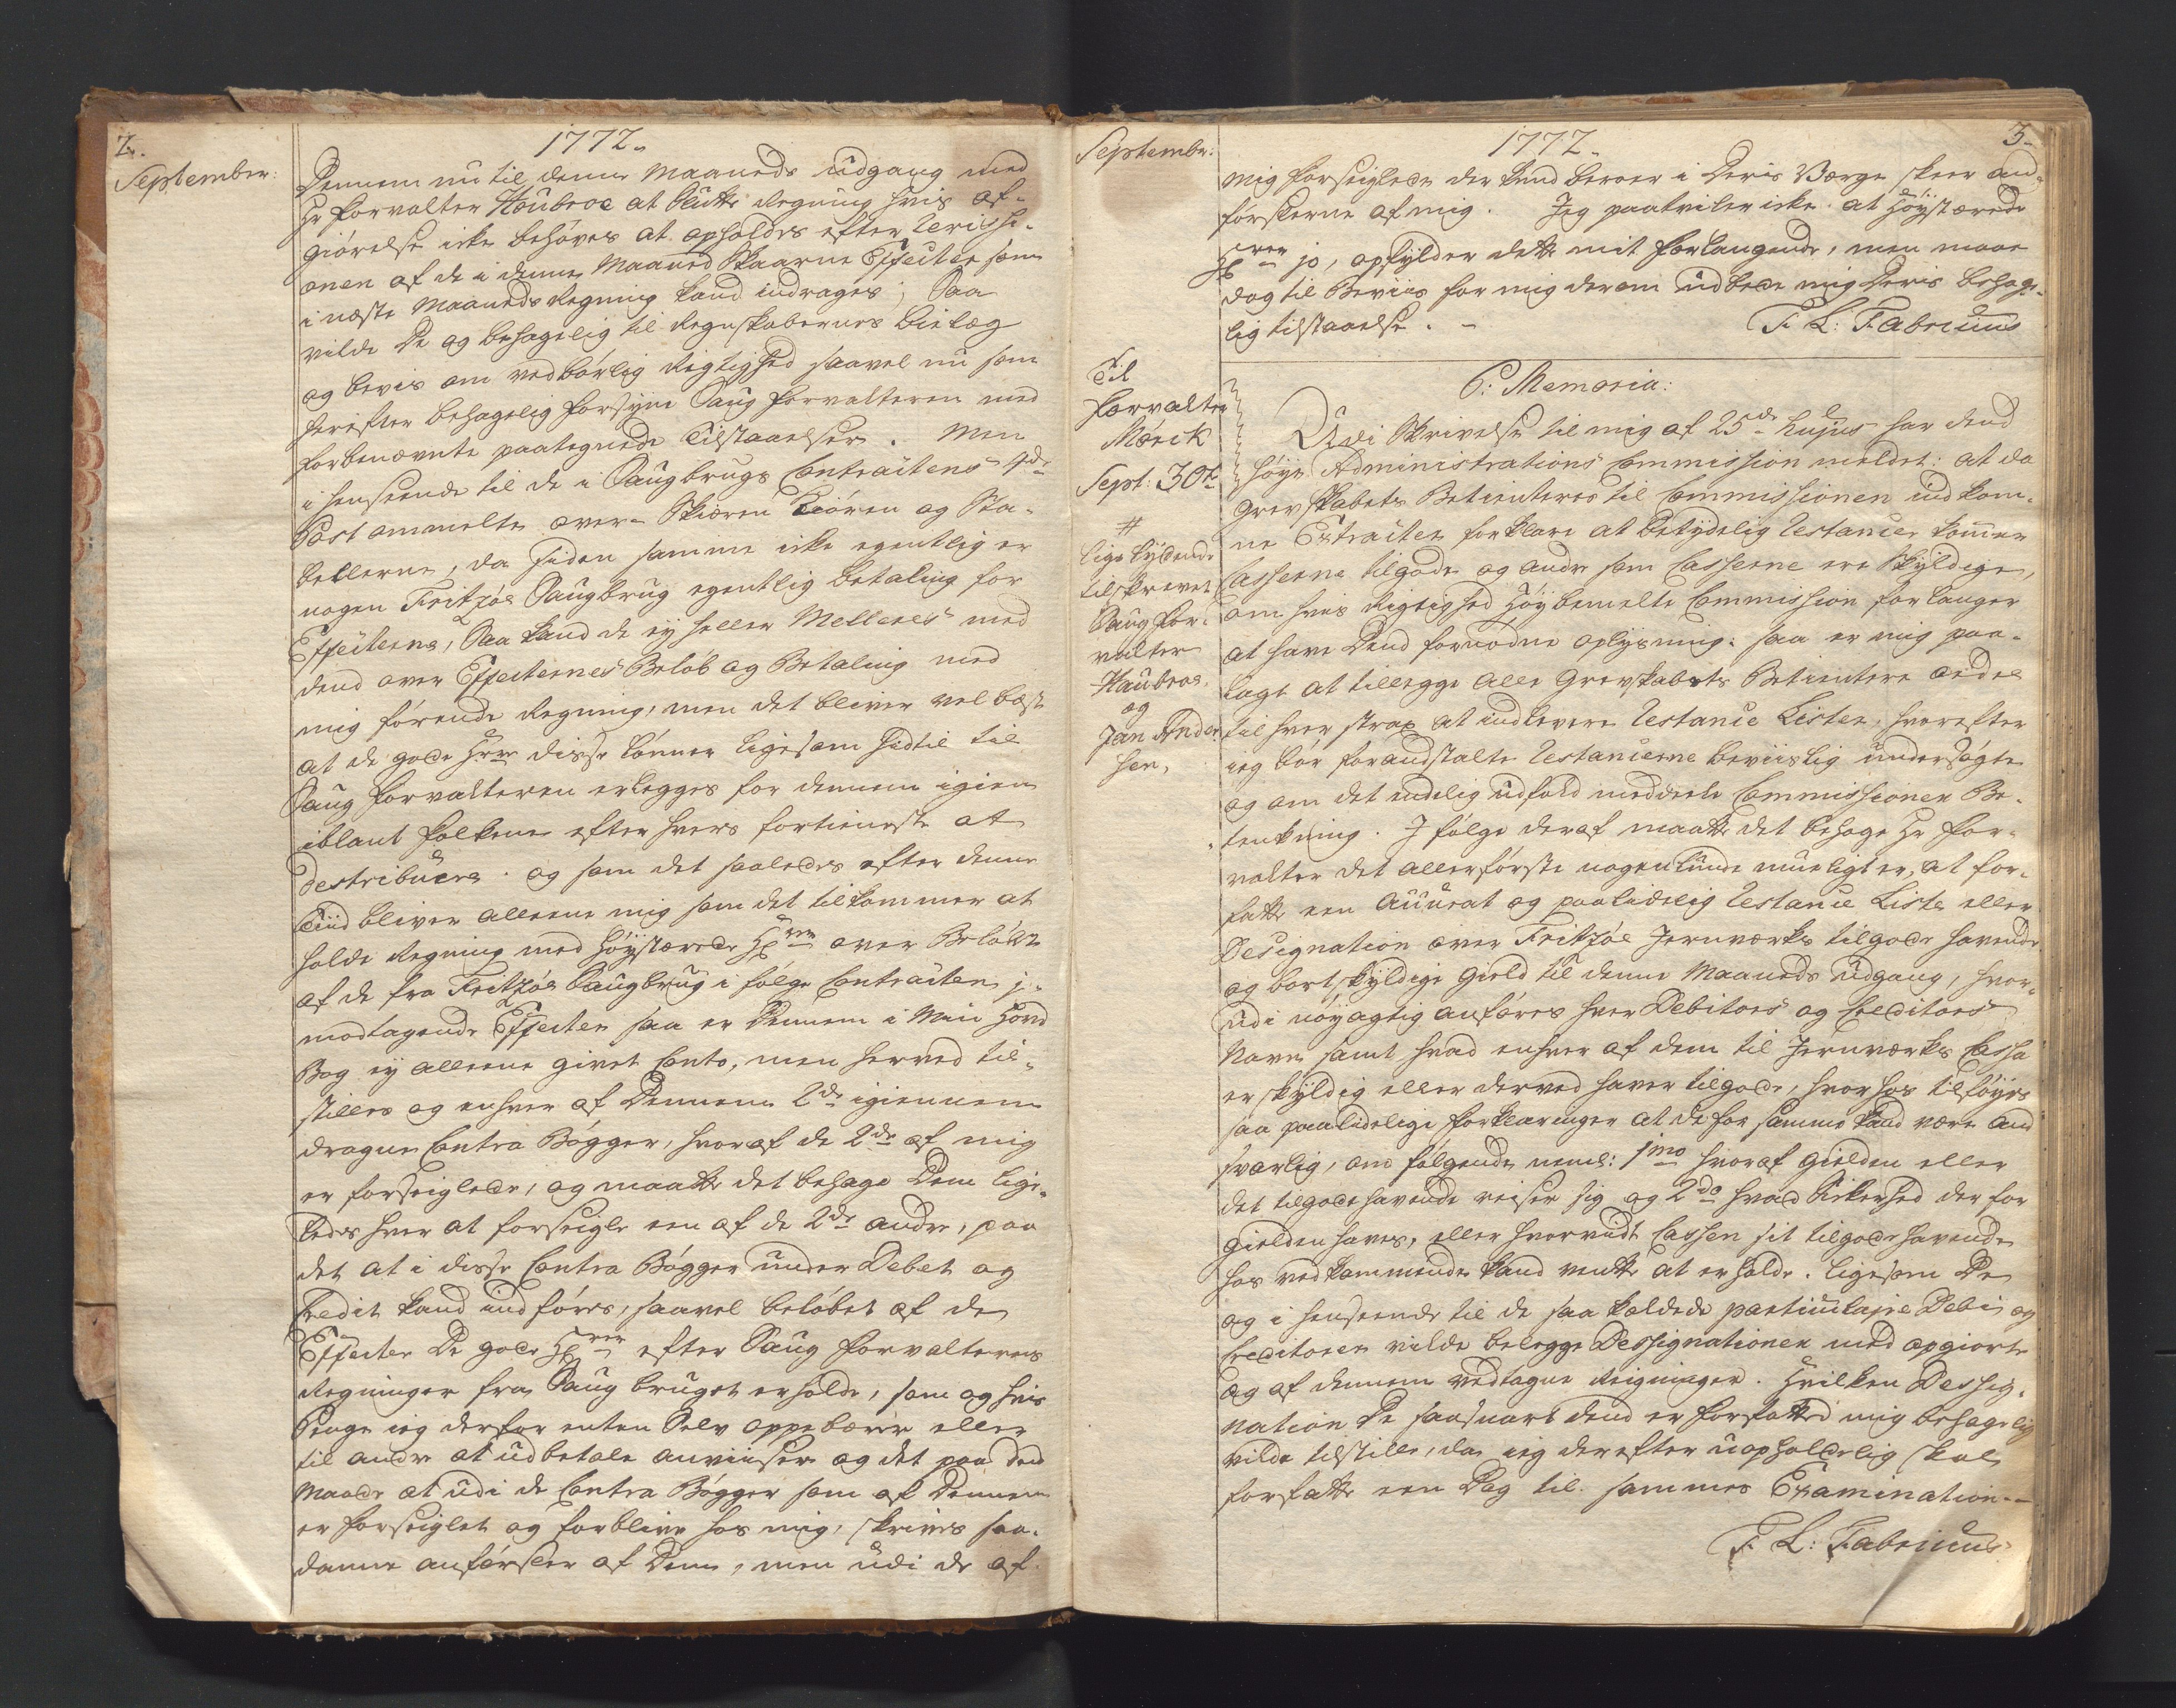 2.
1772.
September:
Dennem nu til denne Maaneds udgang med
Hr Forvalter Houbroe at slutte Regning hvis af-
giørelse icke behøves at opholdes efter Verissi-
onen af de i denne Maaned Skaarne Effecter som
i næste Maaneds Regning kand indrages; Saa
vilde De og behagelig til Regnskabernes bielæg
og bevis om vedbørlig Rigtighed saavel nu som
herefter behagelig forsyne Saug Forvalteren med
forbenævnte paategnede Tilstaaelser. Men
i henseende til de i Saugbrugs Contractens 4de
Post ommelte over Skiæren Kiøren og Sta-
bellerne, da siden samme icke egentlig er
nogen Fritzøe Saugbrug egentlig betaling for
Effecterne, Saa kand de ey heller Melleres med
dend over Effecternes Beløb og Betaling med
mig førende Regning, men det bliver vel best
at de gode Hrer disse lønner ligesom hidtil til
Saug Forvalteren erlegges for dennem igien
iblant Folkene efter hvers fortieneste at
destribuere. og som det saaledes efter denne
Tiid bliver alleene mig som det tilkommer at
holde Regning med Høystærede Hrer over Beløbet
af de fra Fritzøe Saugbrug i følge Contracten i-
modtagende Effecter saa er Dennem i Min Hoved
Bog ey alleene givet Conto, men herved til-
stilles og enhver af Dennem 2de igiennem
dragne Contra Bøgger, hvoraf de 2de af mig
er forseiglede, og maatte det behage Dem lige-
ledes hver at forseigle een af de 2de andre, paa
det at i disse Contra Bøgger under Debet og
Credit kand indføres, saavel beløbet af de
Effecter De gode Hrer efter Saug Forvalterens
Regninger fra Saug bruget erholde, som og hvis
Penge ieg derfor enten Selv oppebærer eller
til andre at udbetale anviiser og det paa dend
Maade at udi de Contra Bøgger som af Dennem
er forseiglet og forblive hos mig, skrives saa-
danne anførsler af Dem, men udi de af
1772.
3.
Septembr:
mig forseiglede der kund beroer i Deris Værge skeer an-
førslerne af mig. Jeg paatviler icke at Høystærede
Hrer jo, opfylder dette mit forlangende, men maae
dog til Beviis for mig derom udbede mig Deris behage-
lig tilstaaelse. -
F. L: Fabricius
Til
Forvalter
Mørck
Sept: 30te
#
lige lydende
tilskrevet
Saug For-
valter
Haubroe
og
Jan Ander-
sen,
P: Memoria:
Udi Skrivelse til mig af 25de hujus har dend
høye Administrations Commission meldet: at da
Grevskabets Betienteres til Commissionen indkom-
ne Extracter forklare at betydelig Restancer kommer
Casserne tilgode og andre som Casserne ere skyldige,
om hvis Rigtighed Høybemelte Commission forlanger
at have Dend fornødne oplysning: saa er mig paa-
lagt at tillegge alle Grevskabets Betientere ordre
til hver strax at indlevere Restance Lister, hvorefter
ieg bør forandstalte Restancerne beviislig undersøgte
og om det endelig udfald meddeele Commissionen Be-
tenkning. I følge deraf maatte det behage Hr For-
valter det allerførste nogenlunde mueligt er, at for-
fatte een Accurat og paalidelig Restance Liste eller
Designation over Fritzøe Jernværks tilgode havende
og bortskyldige Gield til denne Maaneds udgang, hvor-
udi nøyagtig anføres hver Debitors og Creditors
Navn samt hvad enhver af dem til Jernværks Cassa
er skyldig eller derved haver tilgode, hvorhos tilføyes
saa paalidelige forklaringer at de for samme kand være an-
svarlig, om følgende neml: 1mo hvoraf Gielden eller
det tilgodehavende reiser sig og 2do hvad Sikerhed der for
Gielden haves, eller hvorvidt Cassen sit tilgodehavende
hos vedkommende kand vente at erholde. ligesom De
og i henseende til de saa kaldede particulaire Debi og
Creditorer vilde belegge Dessignationen med opgiorte
og af dennem vedtagne Reigninger. Hvilken Dessig-
nation De saasnart dend er forfatted mig behagelig
vilde tilstille, da ieg derefter uopholdelig skal
forfatte een Dag til sammes Examination.-
F. L: Fabricius